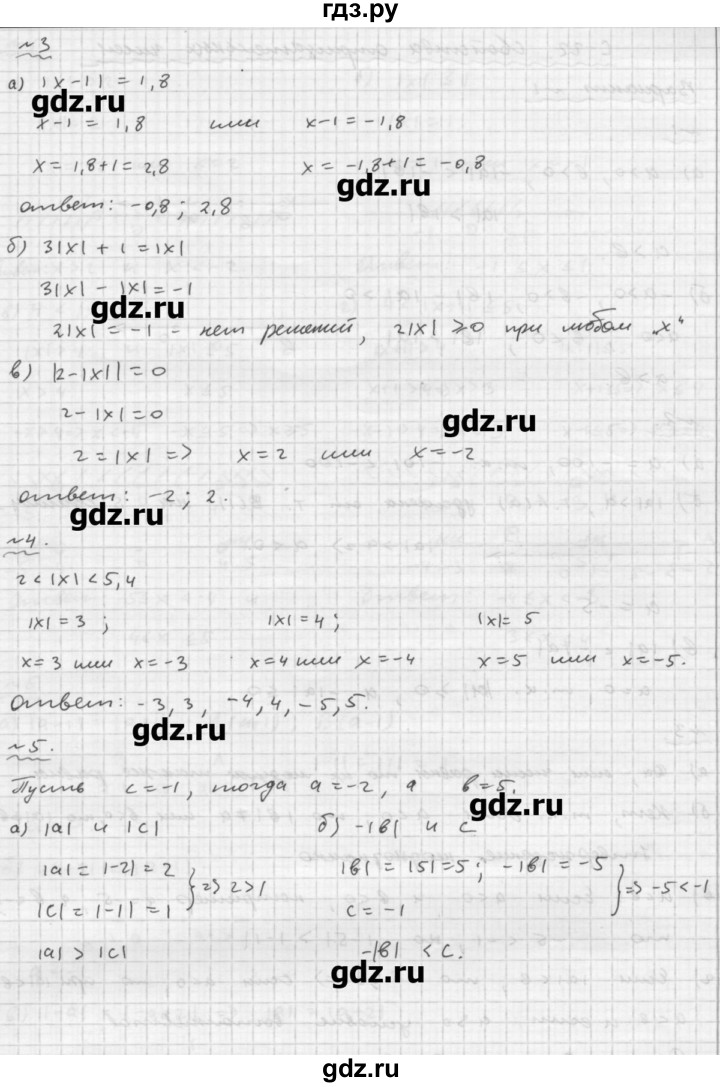 гдз.ру
№3
а) |x-1| = 1,8
gdz.ru
x-1 = 1,8 или x-1 = -1,8
x = 1,8+1 = 2,8 x = -1,8+1 = -0,8
gdz.ru
ответ: -0,8; 2,8
б) 3|x| + 1 = |x|
3|x| - |x| = -1
gdz.ru
2|x| = -1 - нет решений, 2|x| ⩾ 0 при любом „x“
в) |2-|x|| = 0
2-|x| = 0
gdz.ru
2 = |x| => x = 2 или x = -2
ответ: -2; 2.
gdz.ru
№4.
2 < |x| < 5,4
|x| = 3; |x| = 4; |x| = 5
x = 3 или x = -3 x = 4 или x = -4 x = 5 или x = -5.
ответ: -3, 3, -4, 4, -5, 5.
gdz.ru
№5.
Пусть c = -1, тогда a = -2, а b = 5.
gdz.ru
а) |a| и |c| б) -|b| и c
|a| = |-2| = 2 |b| = |5| = 5; -|b| = -5
} => 2 > 1 } => -5 < -1
|c| = |-1| = 1 c = -1
|a| > |c| -|b| < c.
gdz.ru
gdz.ru